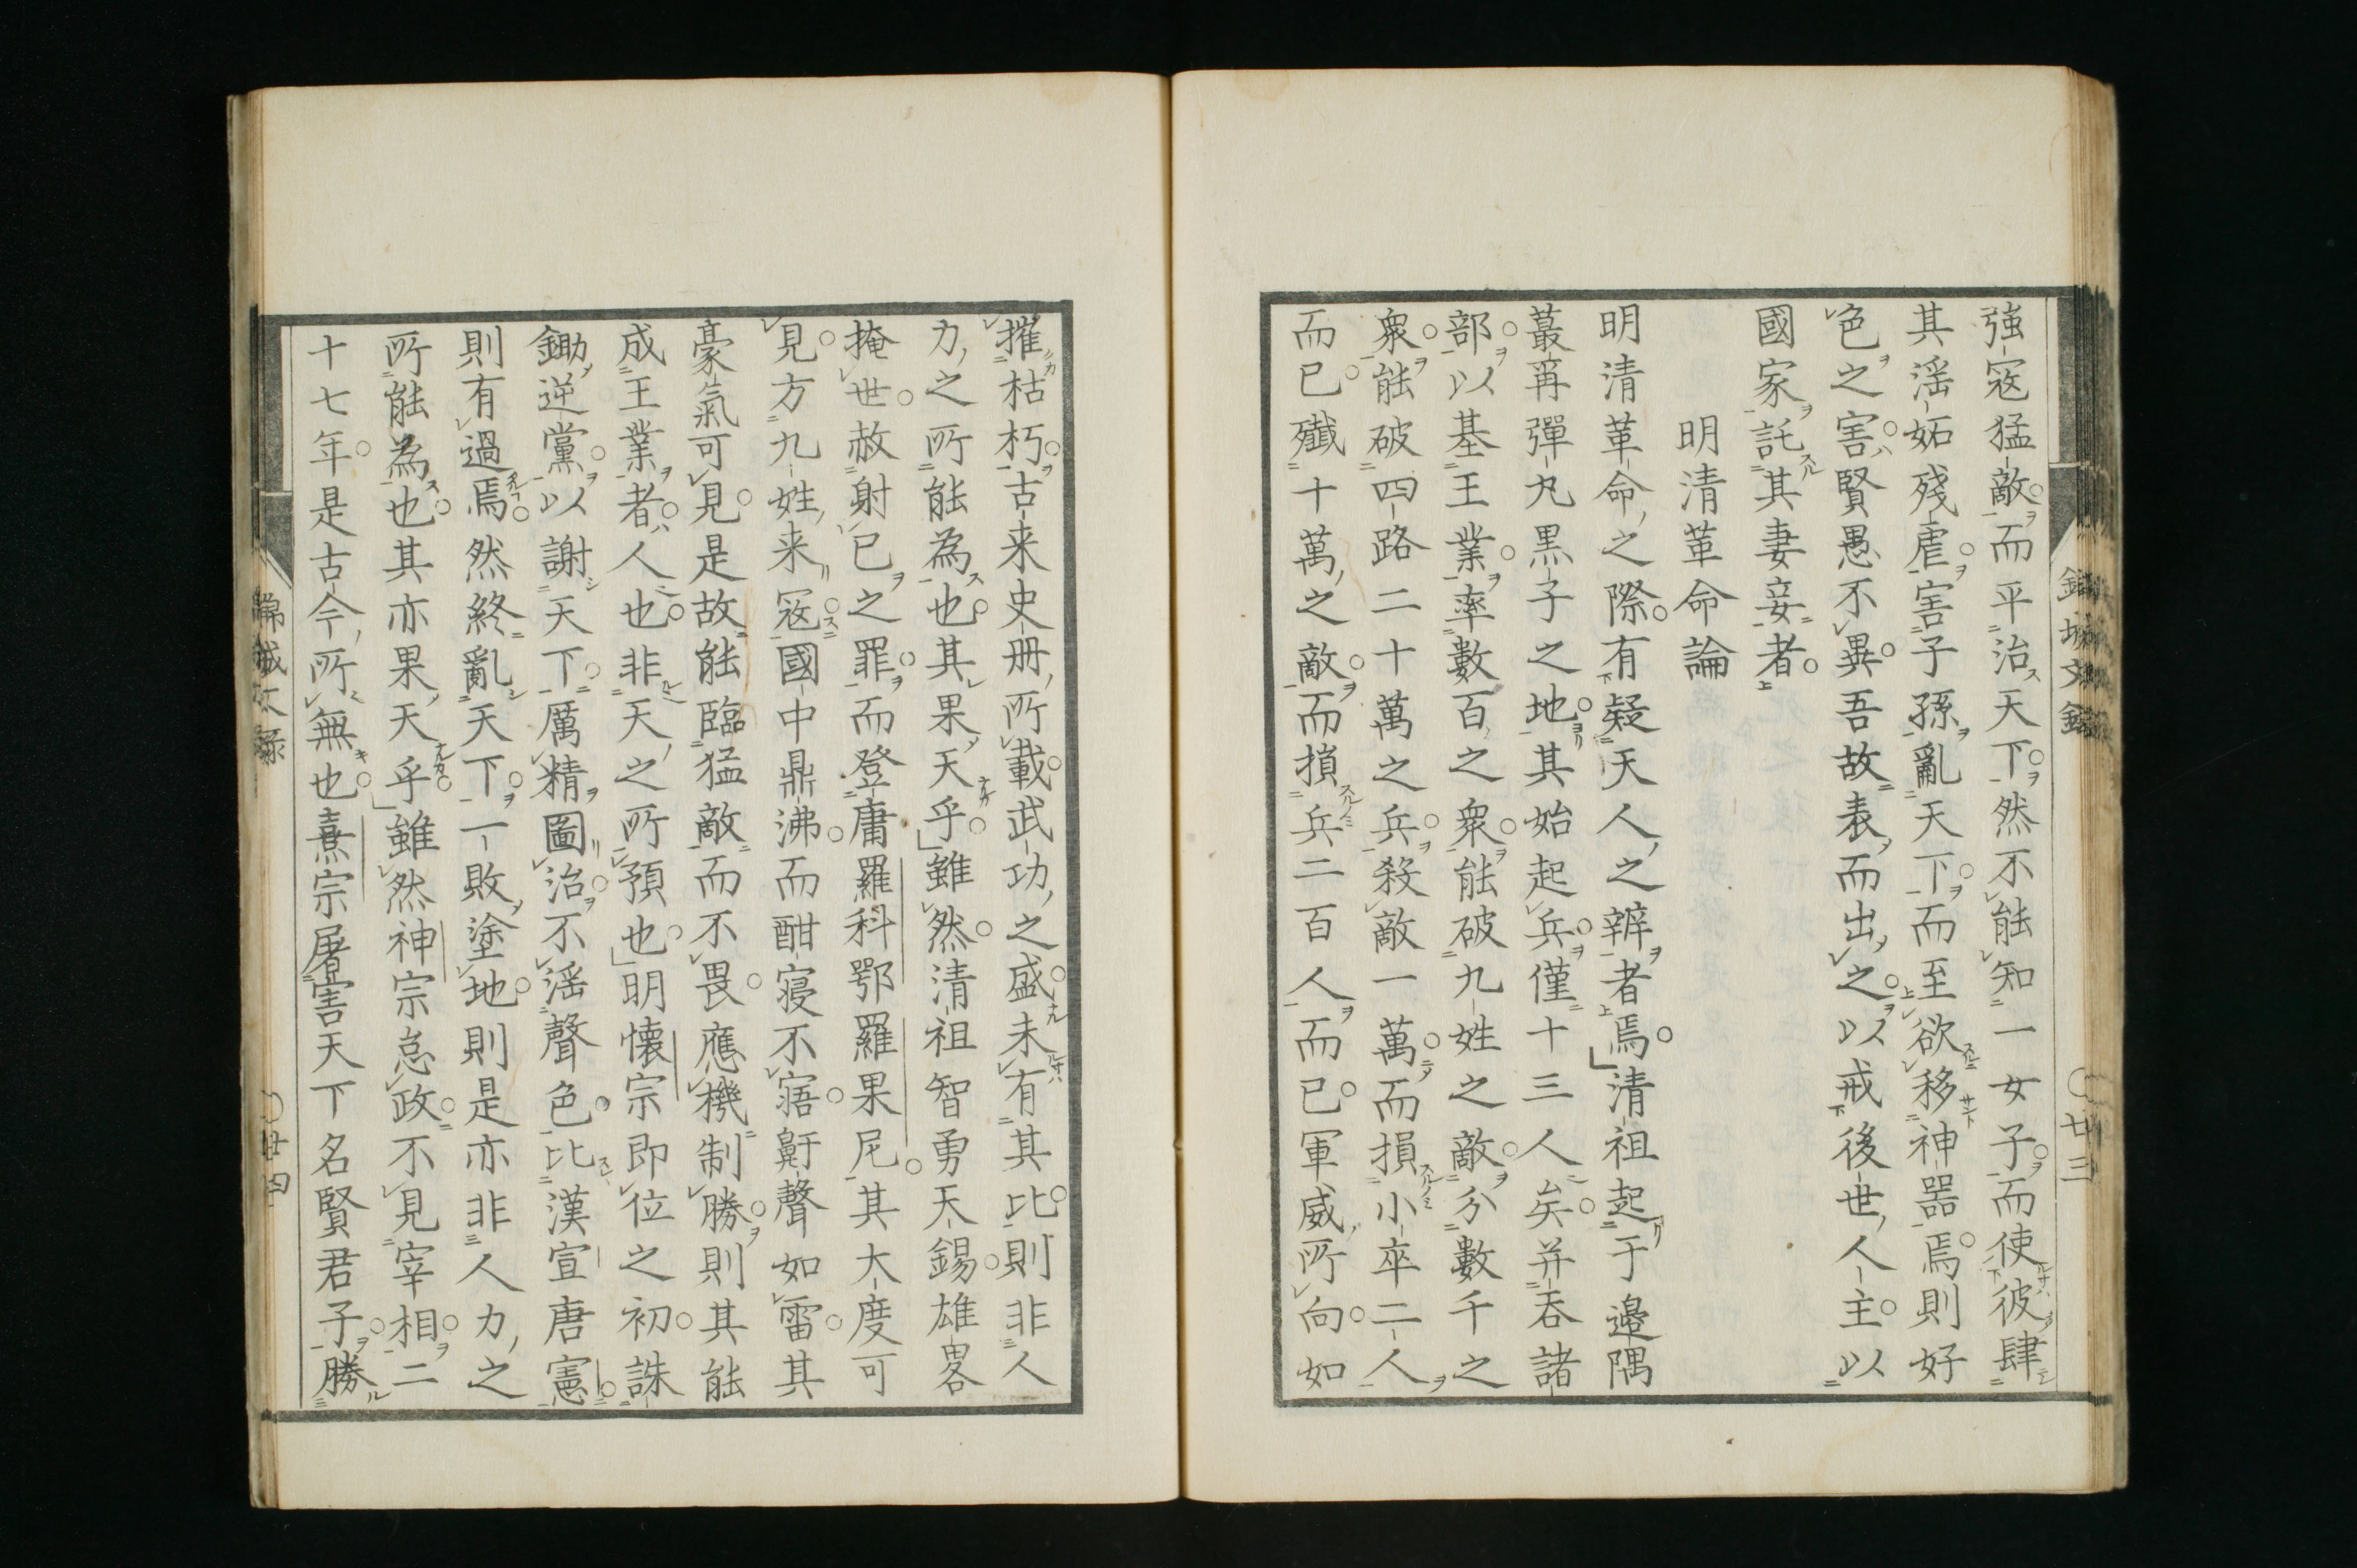 強寇猛敵而平治天下然不能知一女子而使彼肆
其淫妬殘虐害子孫亂天下而至欲移神器焉則好
色之害賢愚不異吾故表而出之以戒後世人主以
國家託其妻妾者
明清革命論
明清革命之際有疑天人之辨者焉清祖起于邊隅
蕞爾彈丸黒子之地其始起兵僅十三人矣并吞諸
部以基王業率數百之衆能破九姓之敵分數千之
衆能破四路二十萬之兵殺敵一萬而損小卒二人
而已殲十萬之敵而損兵二百人而已軍威所向如
摧枯朽古来史册所載武功之盛未有其比則非人
力之所能為也其果天乎雖然清祖智勇天錫雄畧
掩世赦射已之罪而登庸羅科鄂羅果尼其大度可
見方九姓来寇國中鼎沸而酣寝不寤鼾聲如雷其
豪氣可見是故能臨猛敵而不畏應機制勝則其能
成王業者人也非天之所預也明懐宗即位之初誅
鋤逆黨以謝天下厲精圖治不淫聲色比漢宣唐憲
則有過焉然終亂天下一敗塗地則是亦非人力之
所能為也其亦果天乎雖然神宗怠政不見宰相二
十七年是古今所無也熹宗屠害天下名賢君子勝
錦城文録
〇廿三
錦城文録
〇廿四